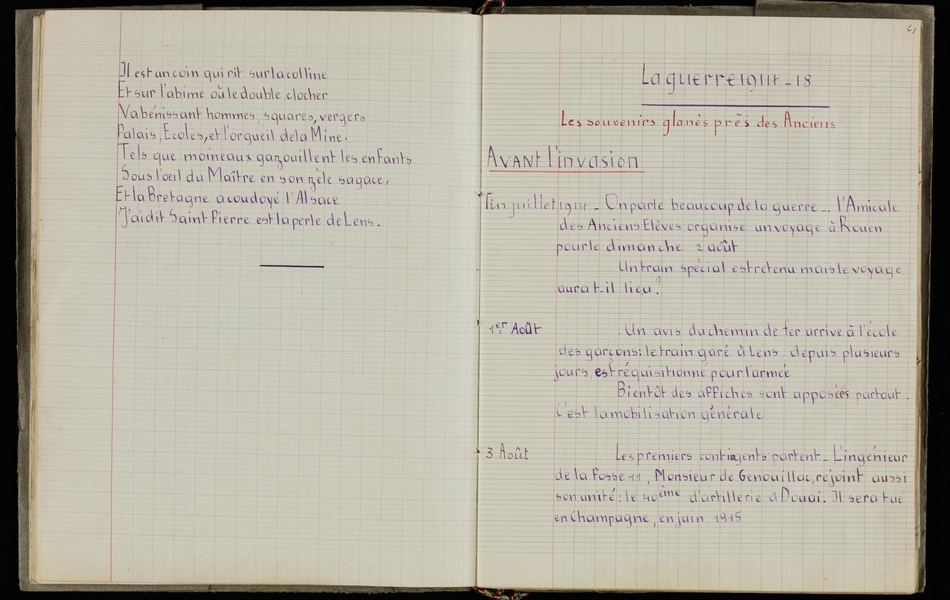 Il est un coin qui rit sur la colline
Et sur l'abîme où le double clocher
Va bénissant hommes, squares, vergers
Palais, Ecoles, et l'orgueil de la Mine.
Tels que moineaux gazouillent les enfants
Sous l'oeil du Maître en son zèle sagace,
Et la Bretagne a coudoyé l'Alsace
J'ai dit Saint Pierre est la perle de Lens.
La guerre 1914-18
Les souvenirs glanés près des Anciens
Avant l'invasion
Fin juillet 1914 - On parle beaucoup de la guerre... l'Amicale
des Anciens Elèves organise un voyage à Rouen
pour le dimanche 2 août
Un train spécial est retenu mais le voyage
aura t-il lieu ?
1er Août
. Un avis du chemin de fer arrive à l'école
des garçons: le train garé à Lens depuis plusieurs
jours, est réquisitionné pour l'armée
Bientôt des affiches sont apposées partout.
C'est la mobilisation générale
3 Août
Les premiers contingents partent - L'ingénieur
de la Fosse 11, Monsieur de Genouillac, rejoint aussi
son unité: le 40ème d'artillerie à Douai. Il sera tué
en Champagne, en juin 1915